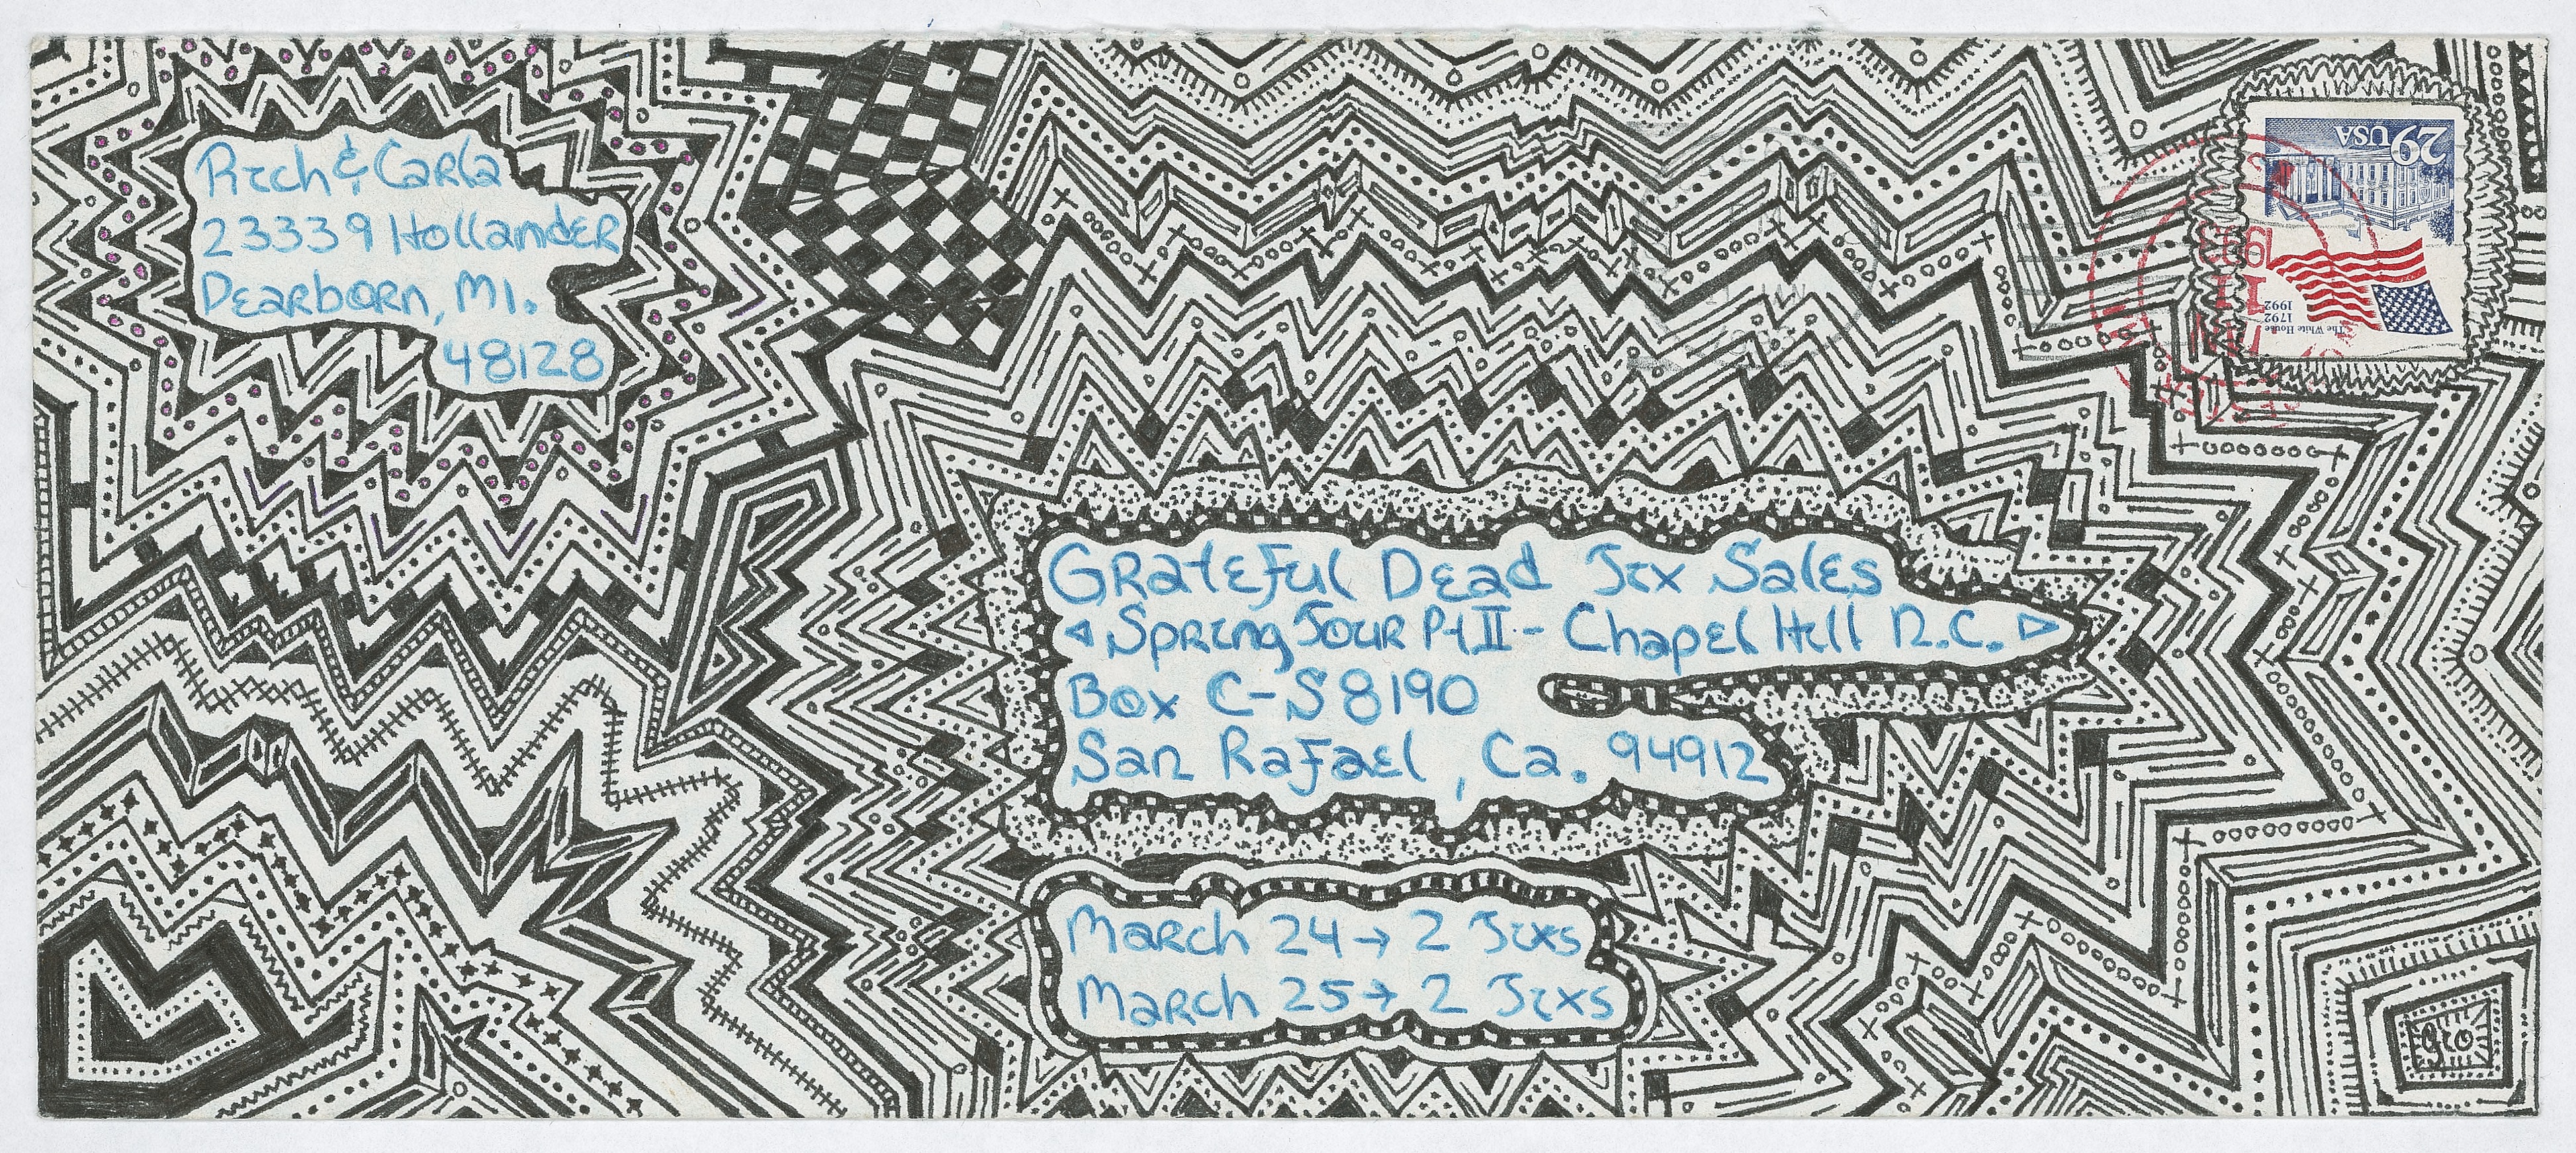 Rich & Carla
23339 Hollander
Dearborn, MI.
48128
29 USA
The White House
1792 1992
11 JAN
1993
Grateful Dead Tix Sales
Spring Tour Pt II - Chapel Hill N.C.
Box C-S 8190
San Rafael, Ca. 94912
March 24 → 2 Tixs
March 25 → 2 Tixs